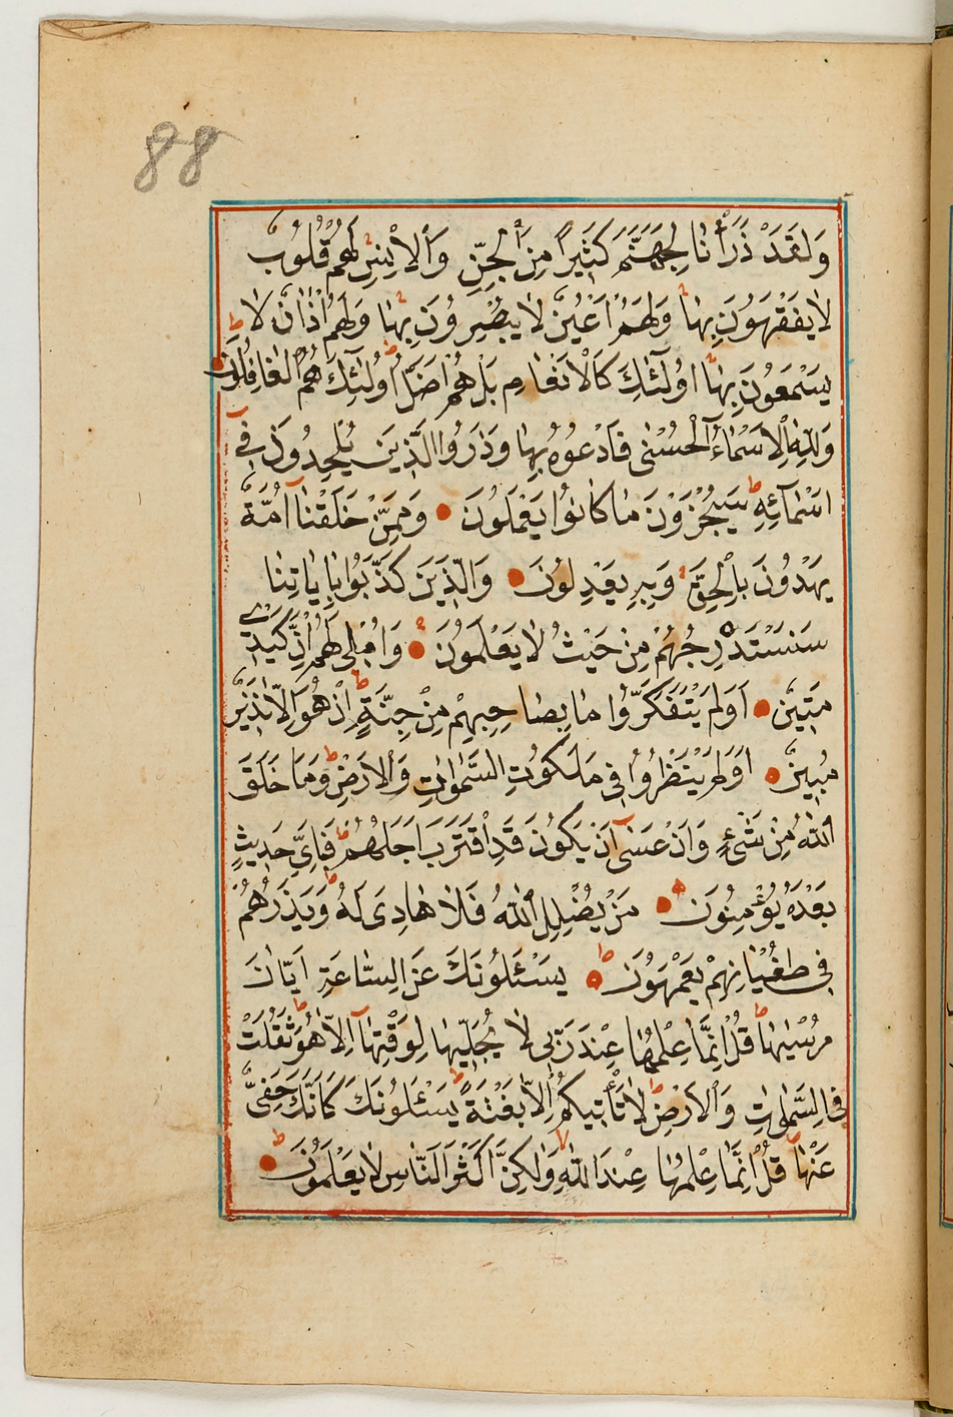 88
وَلَقَدْ ذَرَأْنَا لِجَهَنَّمَ كَثِيرًا مِنَ الْجِنِّ وَالْاِنْسِ لَهُمْ قُلُوبٌ
لَا يَفْقَهُونَ بِهَا وَلَهُمْ اَعْيُنٌ لَا يُبْصِرُونَ بِهَا وَلَهُمْ اٰذَانٌ لَا
يَسْمَعُونَ بِهَا اُولٰٓئِكَ كَالْاَنْعَامِ بَلْ هُمْ اَضَلُّ اُولٰٓئِكَ هُمُ الْغَافِلُونَ
وَلِلّٰهِ الْاَسْمَاءُ الْحُسْنٰى فَادْعُوهُ بِهَا وَذَرُوا الَّذِينَ يُلْحِدُونَ فِى
اَسْمَآئِهِ سَيُجْزَوْنَ مَا كَانُوا يَعْمَلُونَ وَمِمَّنْ خَلَقْنَا اُمَّةٌ
يَهْدُونَ بِالْحَقِّ وَبِهِ يَعْدِلُونَ وَالَّذِينَ كَذَّبُوا بِاٰيَاتِنَا
سَنَسْتَدْرِجُهُمْ مِنْ حَيْثُ لَا يَعْلَمُونَ وَاُمْلِى لَهُمْ اِنَّ كَيْدِى
مَتِينٌ اَوَلَمْ يَتَفَكَّرُوا مَا بِصَاحِبِهِمْ مِنْ جِنَّةٍ اِنْ هُوَ اِلَّا نَذِيرٌ
مُبِينٌ اَوَلَمْ يَنْظُرُوا فِى مَلَكُوتِ السَّمٰوَاتِ وَالْاَرْضِ وَمَا خَلَقَ
اللّٰهُ مِنْ شَىْءٍ وَاَنْ عَسٰٓى اَنْ يَكُونَ قَدِ اقْتَرَبَ اَجَلُهُمْ فَبِاَىِّ حَدِيثٍ
بَعْدَهُ يُؤْمِنُونَ مَنْ يُضْلِلِ اللّٰهُ فَلَا هَادِىَ لَهُ وَيَذَرُهُمْ
فِى طُغْيَانِهِمْ يَعْمَهُونَ يَسْئَلُونَكَ عَنِ السَّاعَةِ اَيَّانَ
مُرْسٰيهَا قُلْ اِنَّمَا عِلْمُهَا عِنْدَ رَبِّى لَا يُجَلِّيهَا لِوَقْتِهَا اِلَّا هُوَ ثَقُلَتْ
فِى السَّمٰوَاتِ وَالْاَرْضِ لَا تَأْتِيكُمْ اِلَّا بَغْتَةً يَسْئَلُونَكَ كَاَنَّكَ حَفِىٌّ
عَنْهَا قُلْ اِنَّمَا عِلْمُهَا عِنْدَ اللّٰهِ وَلٰكِنَّ اَكْثَرَ النَّاسِ لَا يَعْلَمُونَ